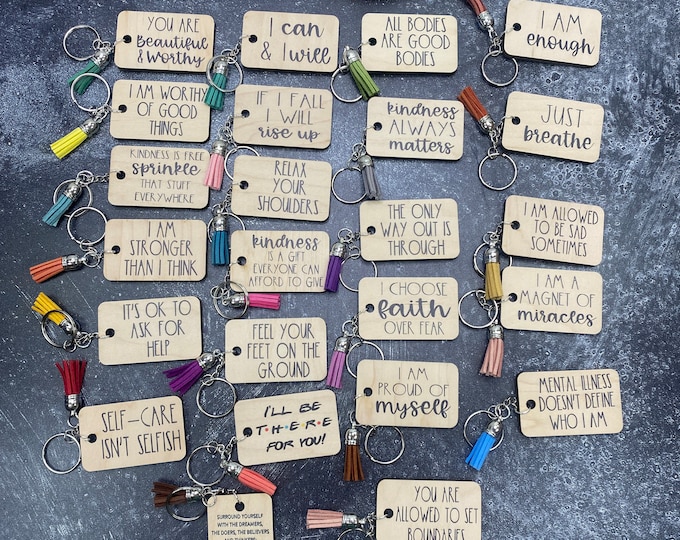 YOU ARE
Beautiful
& Worthy
I can
& I will
ALL BODIES
ARE GOOD
BODIES
I AM
enough
I AM WORTHY
OF GOOD
THINGS
IF I FALL
I WILL
rise up
kindness
ALWAYS
matters
JUST
breathe
KINDNESS IS FREE
sprinkle
THAT STUFF
EVERYWHERE
RELAX
YOUR
SHOULDERS
THE ONLY
WAY OUT IS
THROUGH
I AM ALLOWED
TO BE SAD
SOMETIMES
I AM
STRONGER
THAN I THINK
kindness
IS A GIFT
EVERYONE CAN
AFFORD TO GIVE
I CHOOSE
faith
OVER FEAR
I AM A
MAGNET OF
miracles
IT'S OK TO
ASK FOR
HELP
FEEL YOUR
FEET ON THE
GROUND
I AM
PROUD OF
myself
MENTAL ILLNESS
DOESN'T DEFINE
WHO I AM
SELF-CARE
ISN'T SELFISH
I'LL BE
T•H•E•R•E
FOR YOU!
SURROUND YOURSELF
WITH THE DREAMERS,
THE DOERS, THE BELIEVERS
YOU ARE
ALLOWED TO SET
BOUNDARIES